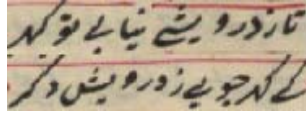 تا زدرویشے نیابے تو گہر
کے گہر جوید ز درویش دگر